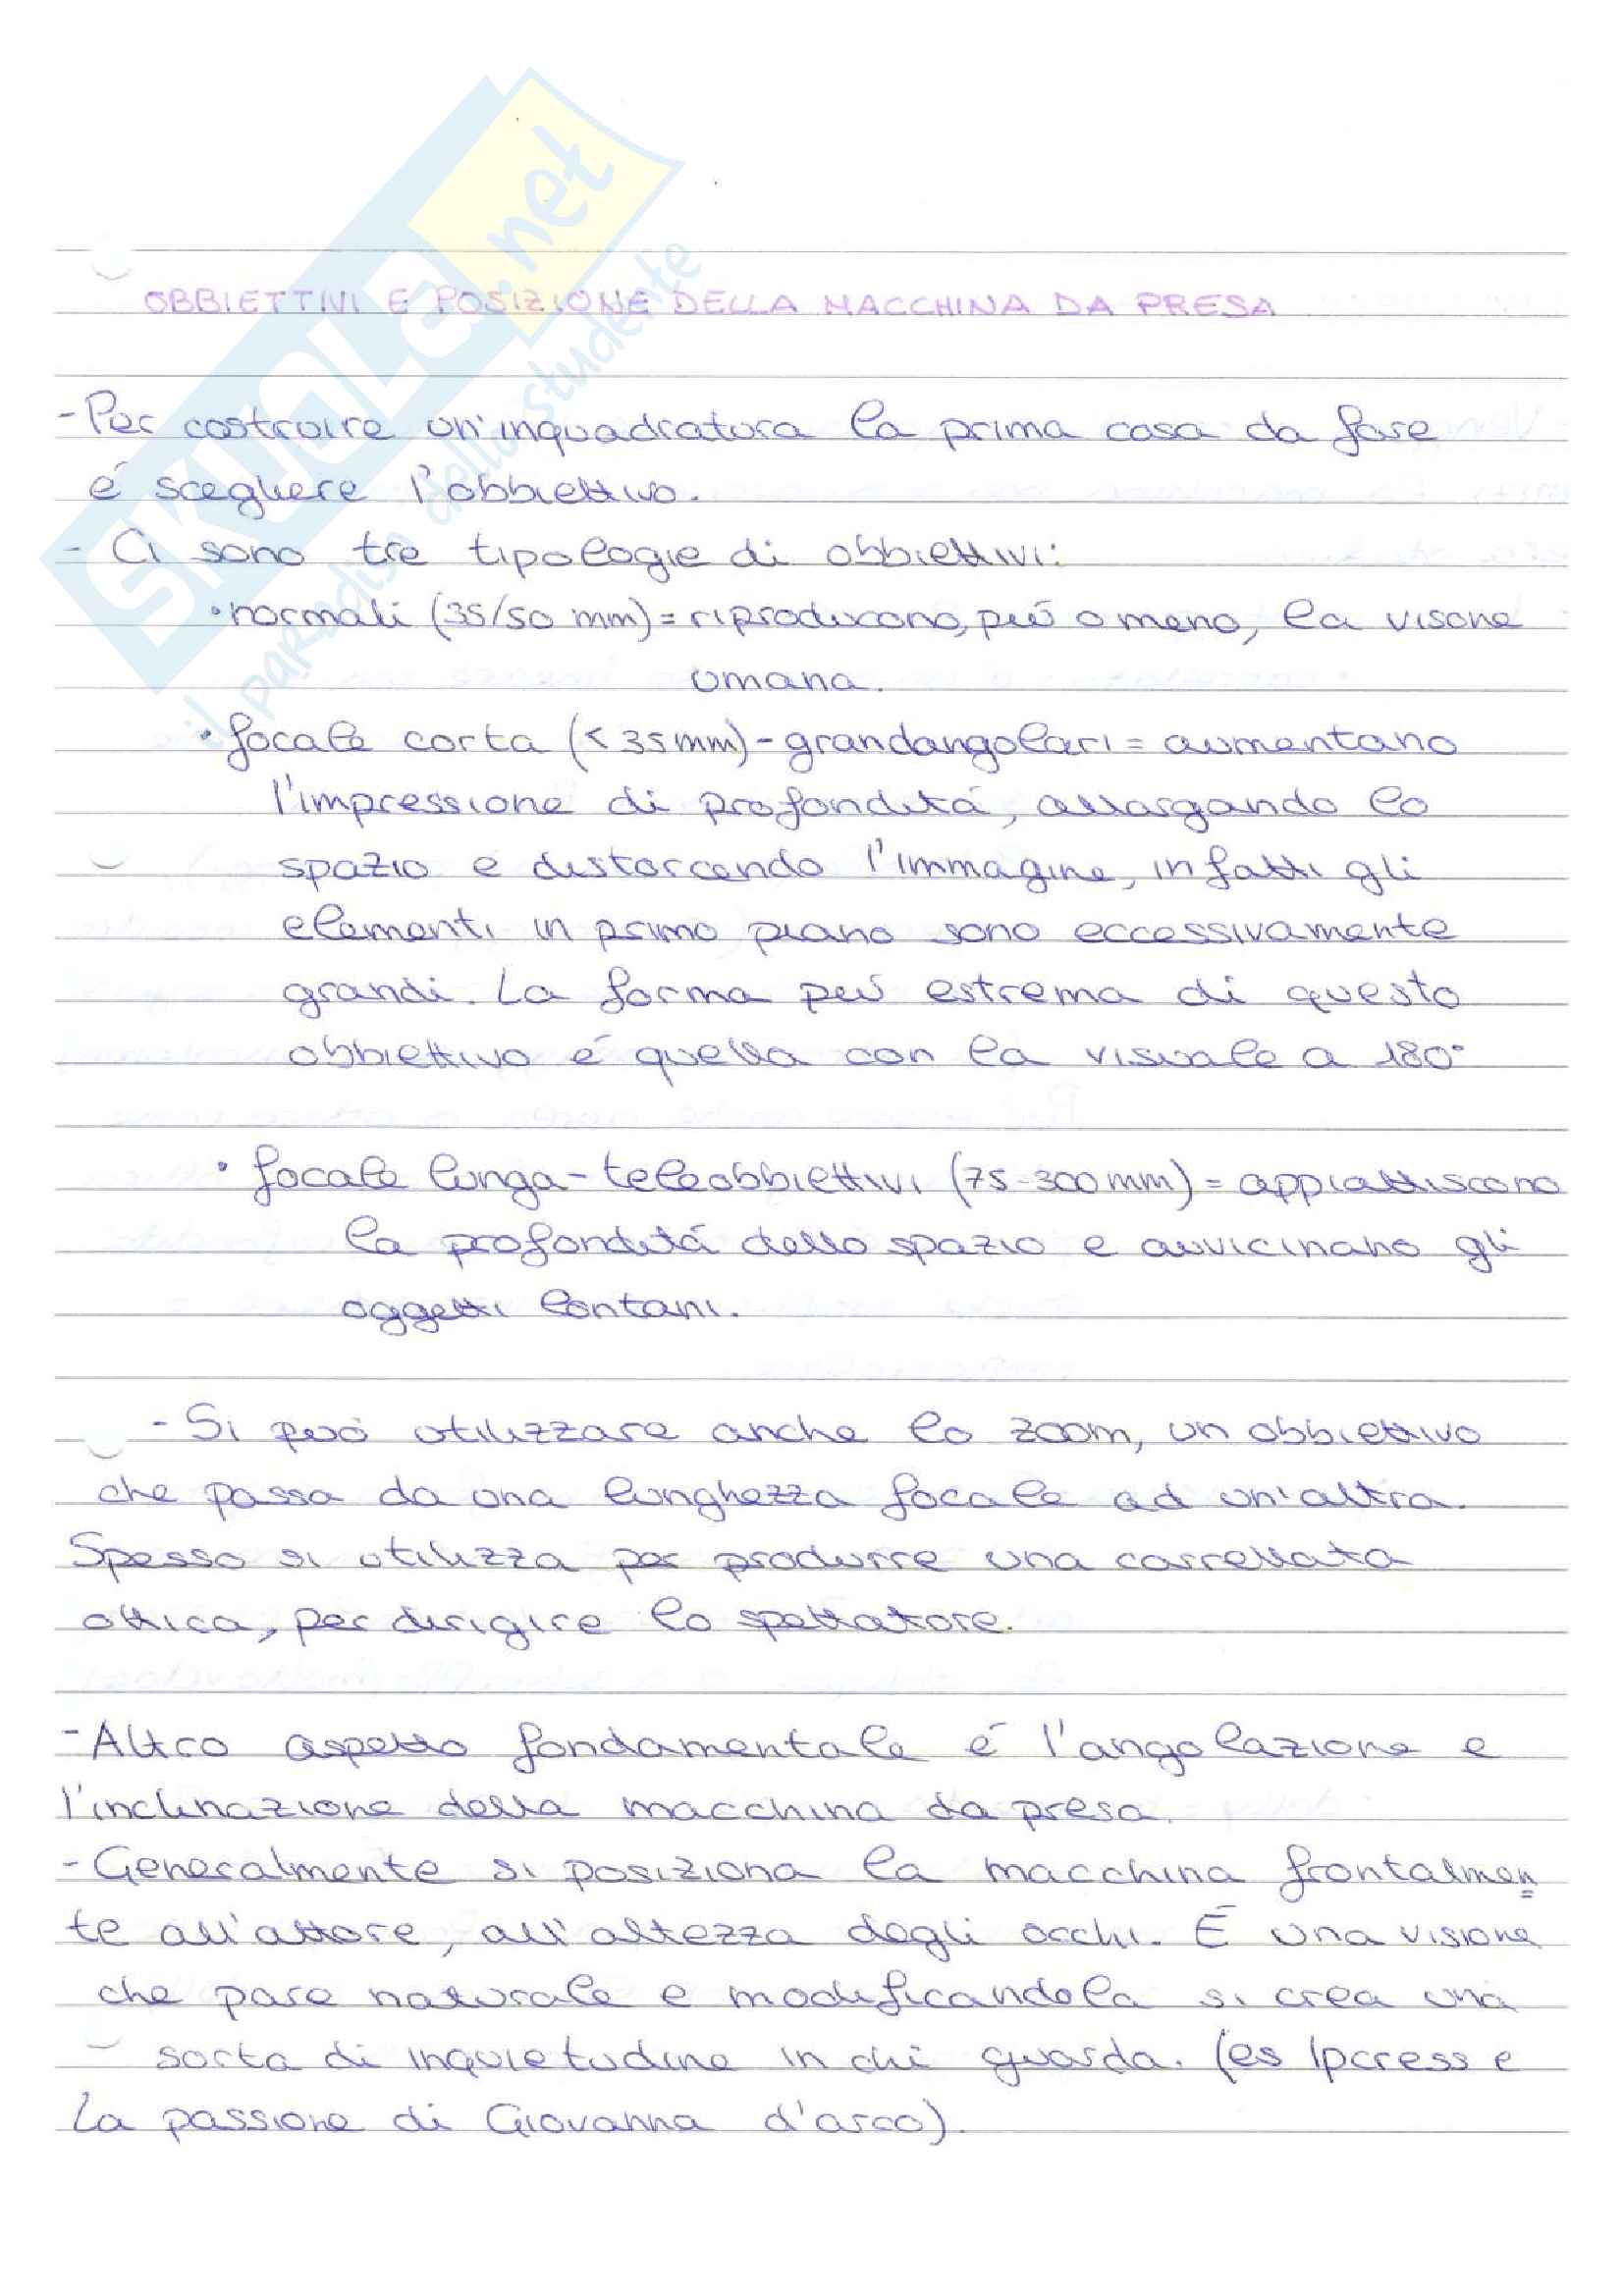 SKUOLA.net
il paradiso dello studente
OBBIETTIVI E POSIZIONE DELLA MACCHINA DA PRESA
- Per costruire un'inquadratura la prima cosa da fare
é scegliere l'obbiettivo.
- Ci sono tre tipologie di obbiettivi:
• normali (35/50 mm) = riproducono, piú o meno, la visone
umana.
• focale corta (< 35mm) - grandangolari = aumentano
l'impressione di profonditá, allargando lo
spazio e distorcendo l'immagine, infatti gli
elementi in primo piano sono eccessivamente
grandi. La forma piú estrema di questo
obbiettivo é quella con la visuale a 180°
• focale lunga - teleobbiettivi (75-300mm) = appiattiscono
la profonditá dello spazio e avvicinano gli
oggetti lontani.
- Si puó utilizzare anche lo zoom, un obbiettivo
che passa da una lunghezza focale ad un'altra.
Spesso si utilizza per produrre una carrellata
ottica, per dirigire lo spettatore.
- Altro aspetto fondamentale é l'angolazione e
l'inclinazione della macchina da presa.
- Generalmente si posiziona la macchina frontalmen=
te all'attore, all'altezza degli occhi. É una visione
che pare naturale e modificandola si crea una
sorta di inquietudine in chi guarda. (es Ipcress e
La passione di Giovanna d'arco).